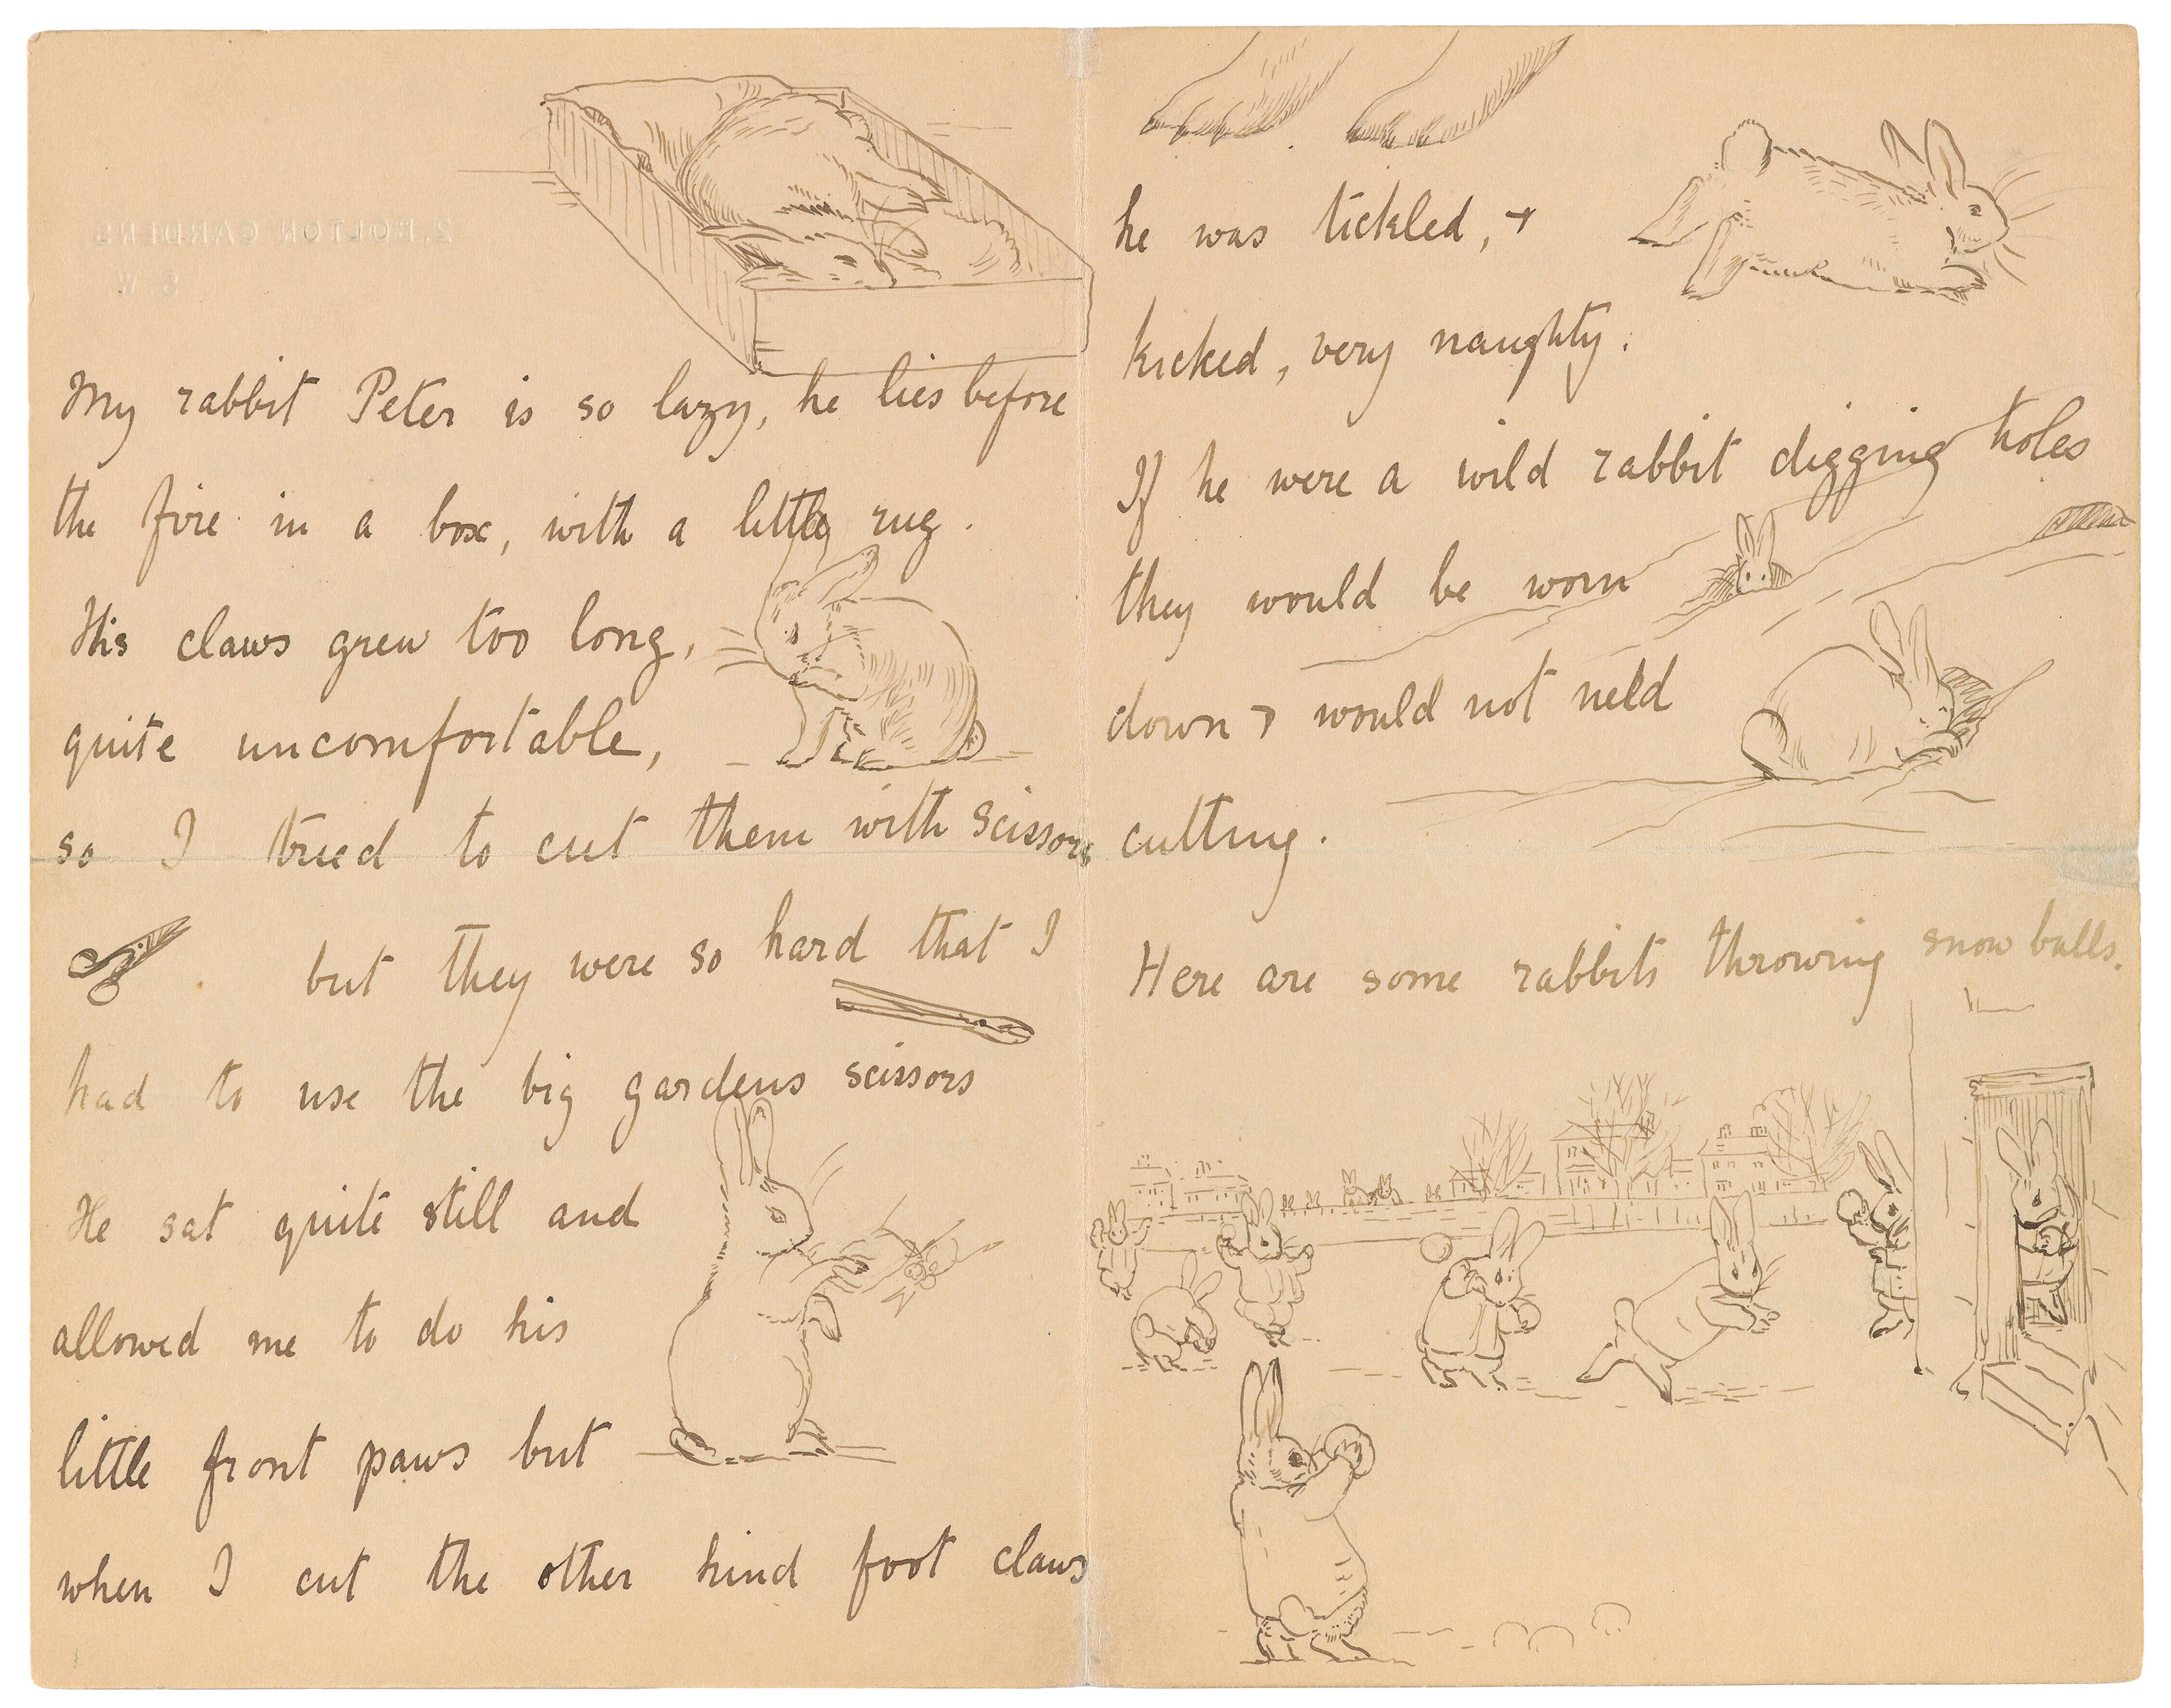 2, BOLTON GARDENS
S.W.
My rabbit Peter is so lazy, he lies before
the fire in a box, with a little rug.
His claws grew too long,
quite uncomfortable,
so I tried to cut them with scissors
but they were so hard that I
had to use the big gardens scissors
He sat quite still and
allowed me to do his
little front paws but
when I cut the other hind foot claws
he was tickled, +
kicked, very naughty.
If he were a wild rabbit digging holes
they would be worn
down + would not need
cutting.
Here are some rabbits throwing snow balls.